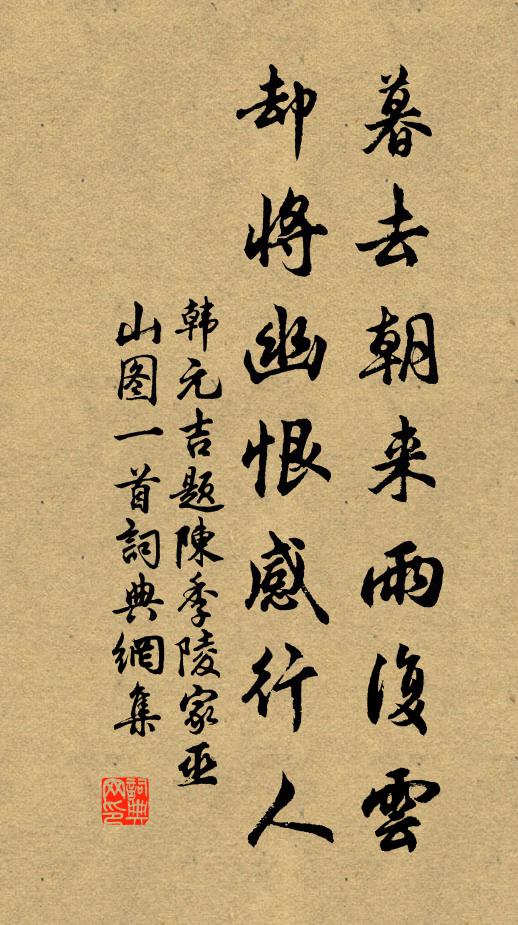 暮去朝来雨復雲
却将幽恨感行人
韩元吉题陳季陵家巫
山图一首詞典網集
詞典
网印